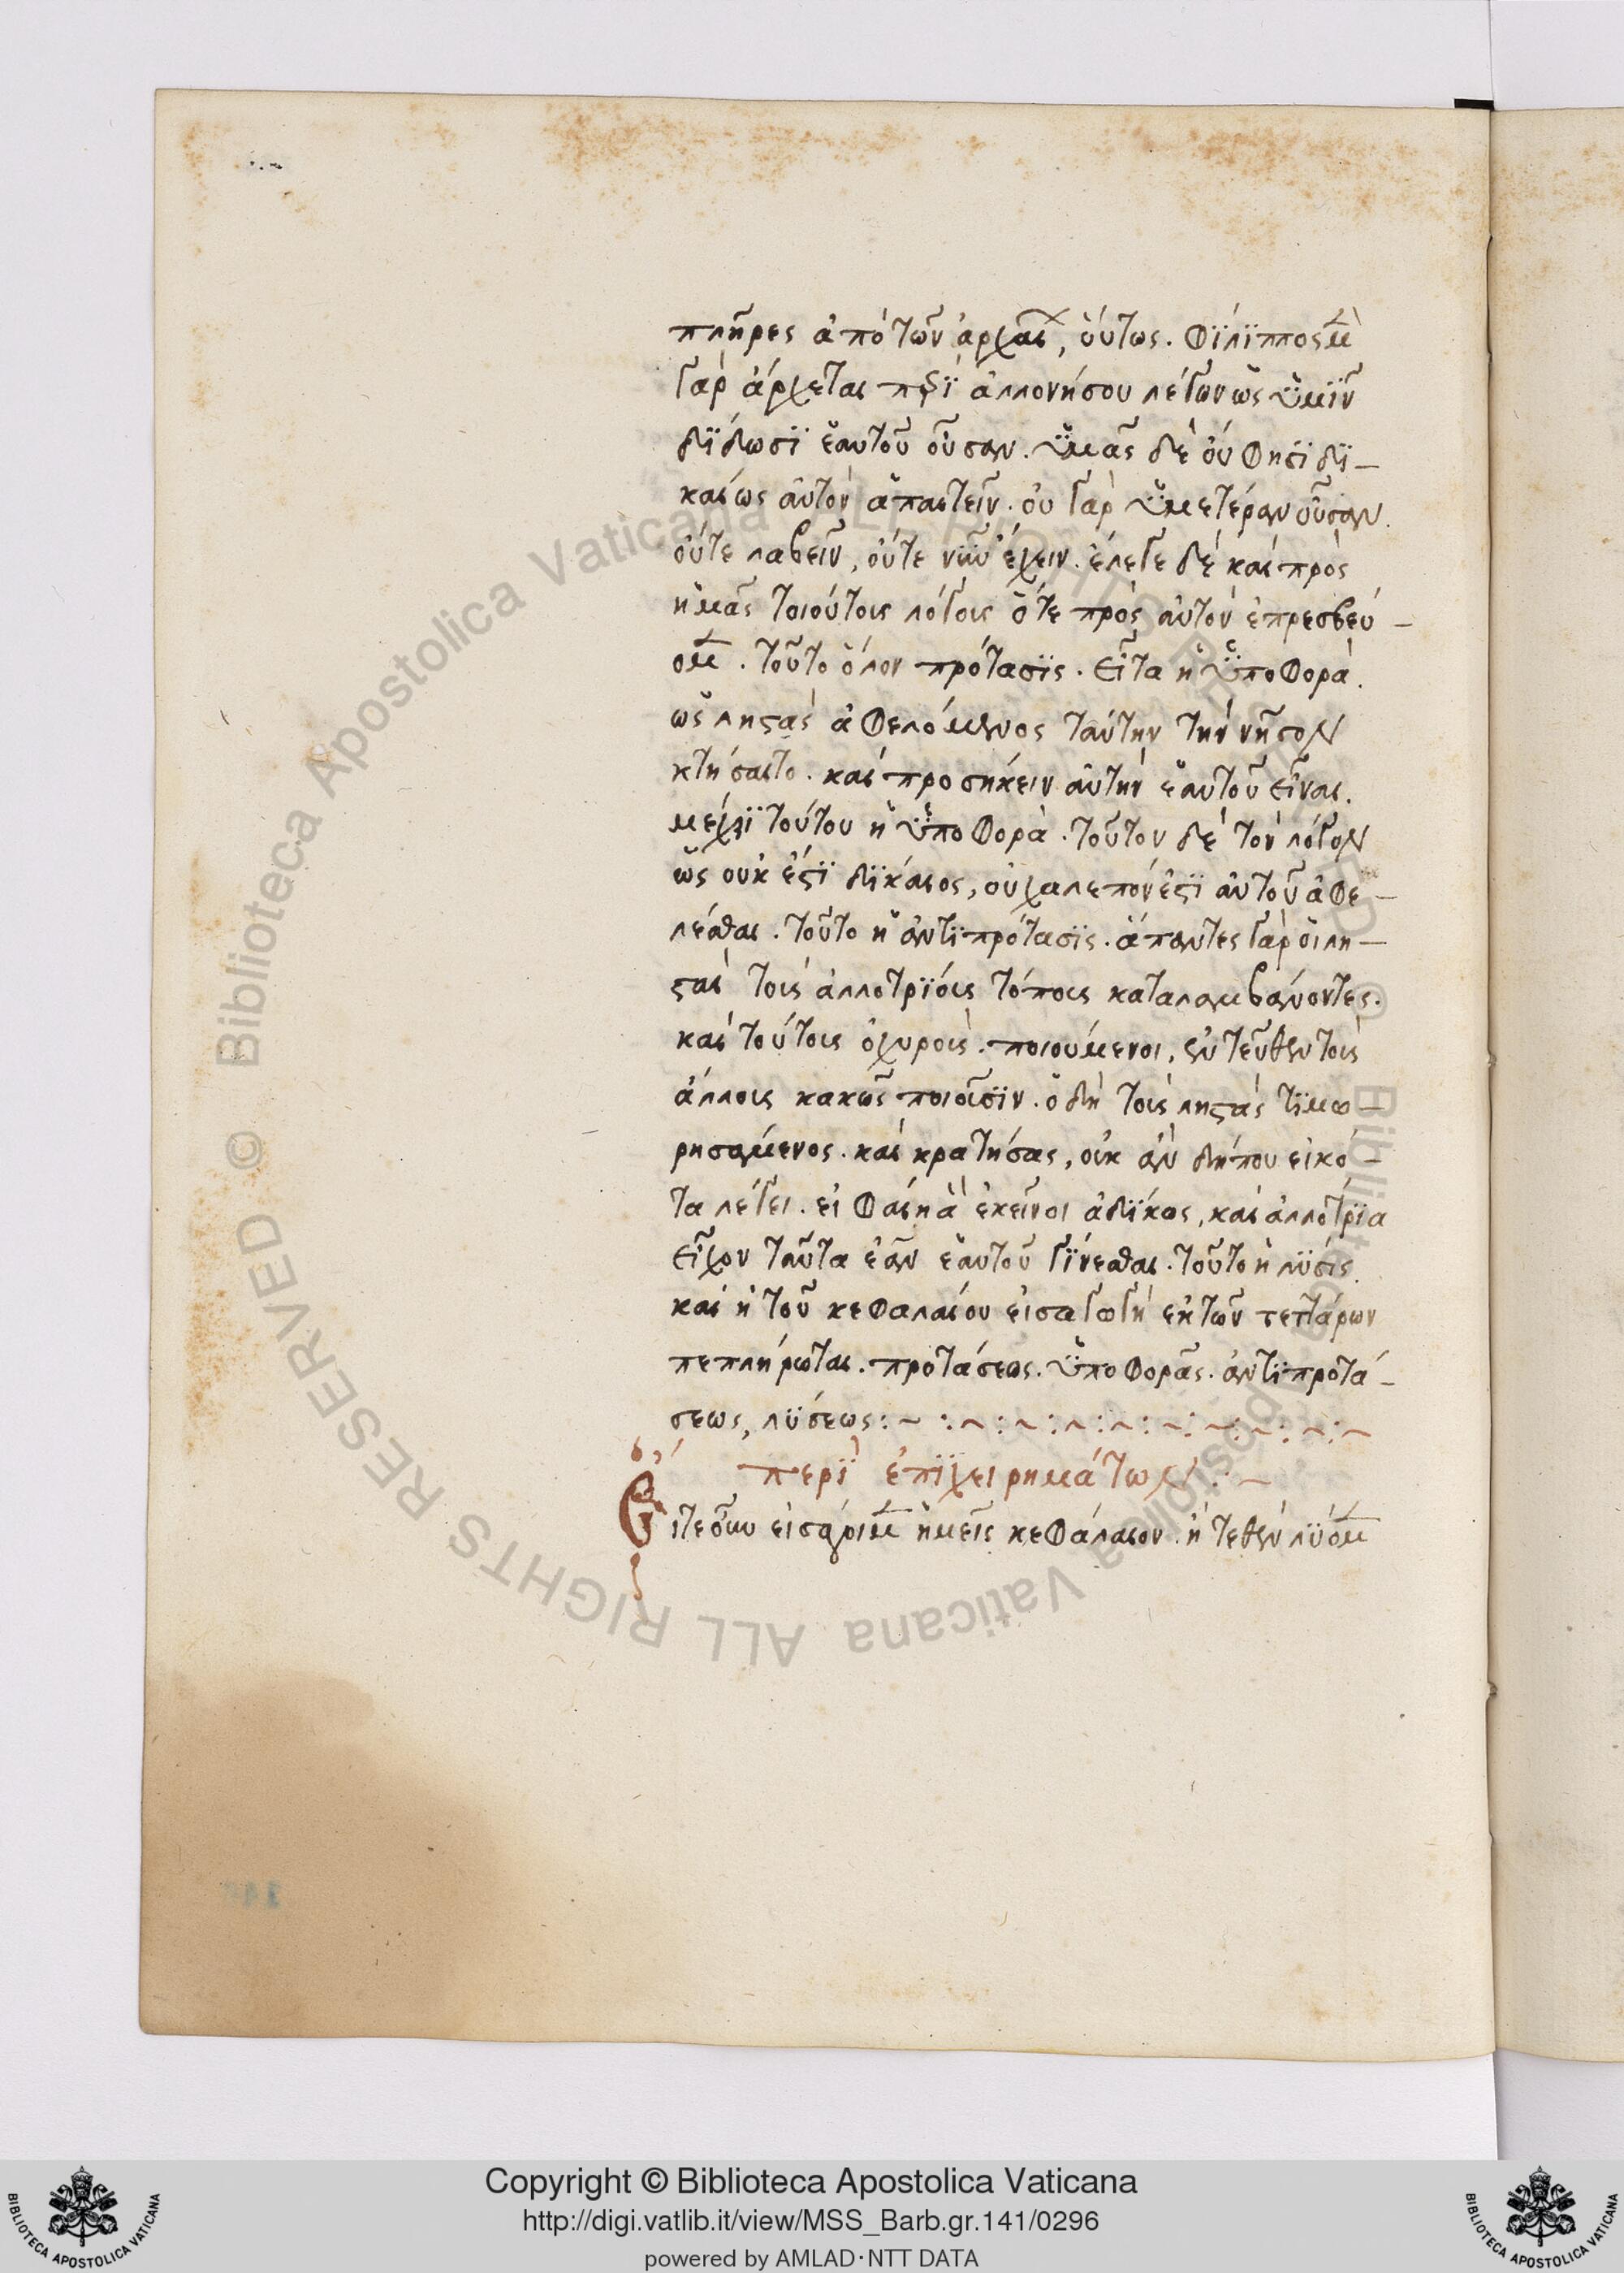 πλῆρες ἀπὸ τῶν ἀρχαί, οὕτως. Φϊλϊππος μὲ
γὰρ ἄρχεται πϼϊ ἁλλονήσου λέγων ὡς ὑμῖν
δϊδωσϊ ἑαυτοῦ οὖσαν. ὑμᾶς δὲ οὐ φησϊ δϊ-
καίως αὐτὸν ἀπαιτεῖν. οὐ γὰρ ὑμετέραν οὖσαν.
οὔτε λαβεῖν, οὔτε νῦν ἔχειν. ἔλεγε δὲ καὶ πρὸς
ἡμᾶς τοιούτοις λόγοις ὅτε πρὸς αὐτὸν ἐπρεσβεύ-
ομ. τοῦτο ὅλον πρότασϊς. εἶτα ἡ ὑποφορά.
ὡς ληστὰς ἀφελόμενος ταύτην τὴν νῆσον
κτήσαιτο. καὶ προσήκειν αὐτὴν ἑαυτοῦ εἶναι.
μέχρϊ τούτου ἡ ὑποφορὰ. τοῦτον δὲ τὸν λόγον
ὡς οὐκ ἔστϊ δϊκαιος, οὐ χαλεπόν ἐστϊ αὐτοῦ ἀφε-
λέσθαι. τοῦτο ἡ ἀντϊπρότασϊς. ἅπαντες γὰρ οἱ λη-
σταὶ τοὶς ἀλλοτρϊοις τόποις καταλαμβάνοντες.
καὶ τούτοις ὀχυροὶς. ποιούμενοι, ἐντεῦθεν τοὶς
ἄλλοις κακῶς ποιοῦσϊν. ὁ δὴ τοὶς ληστὰς τϊμω-
ρησάμενος. καὶ κρατήσας, οὐκ ἂν δήπου εἰκό-
τα λέγει. εἰ φαίη ἃ ἐκεῖνοι ἀδϊκως, καὶ ἀλλότρϊα
εἶχον ταῦτα ἐᾶν ἑαυτοῦ γϊνεσθαι. τοῦτο ἡ λϋσϊς.
καὶ ἡ τοῦ κεφαλαίου εἰσαγωγὴ ἐκ τῶν τεττάρων
πεπλήρωται. προτάσεως. ὑποφορᾶς. ἀντϊπροτά-
σεως, λϋσεως:~ :~:~:~:~:~:~:~:~
περὶ ἐπϊχειρημάτων:~
Εἴτε οὖν εἰσφέροιμ ἡμεῖς κεφάλαιον. ἢ τεθὲν λϋομ
Copyright © Biblioteca Apostolica Vaticana
http://digi.vatlib.it/view/MSS_Barb.gr.141/0296
powered by AMLAD·NTT DATA
BIBLIOTECA APOSTOLICA VATICANA
BIBLIOTECA APOSTOLICA VATICANA
Biblioteca Apostolica Vaticana ALL RIGHTS RESERVED ©
Biblioteca Apostolica Vaticana ALL RIGHTS RESERVED ©